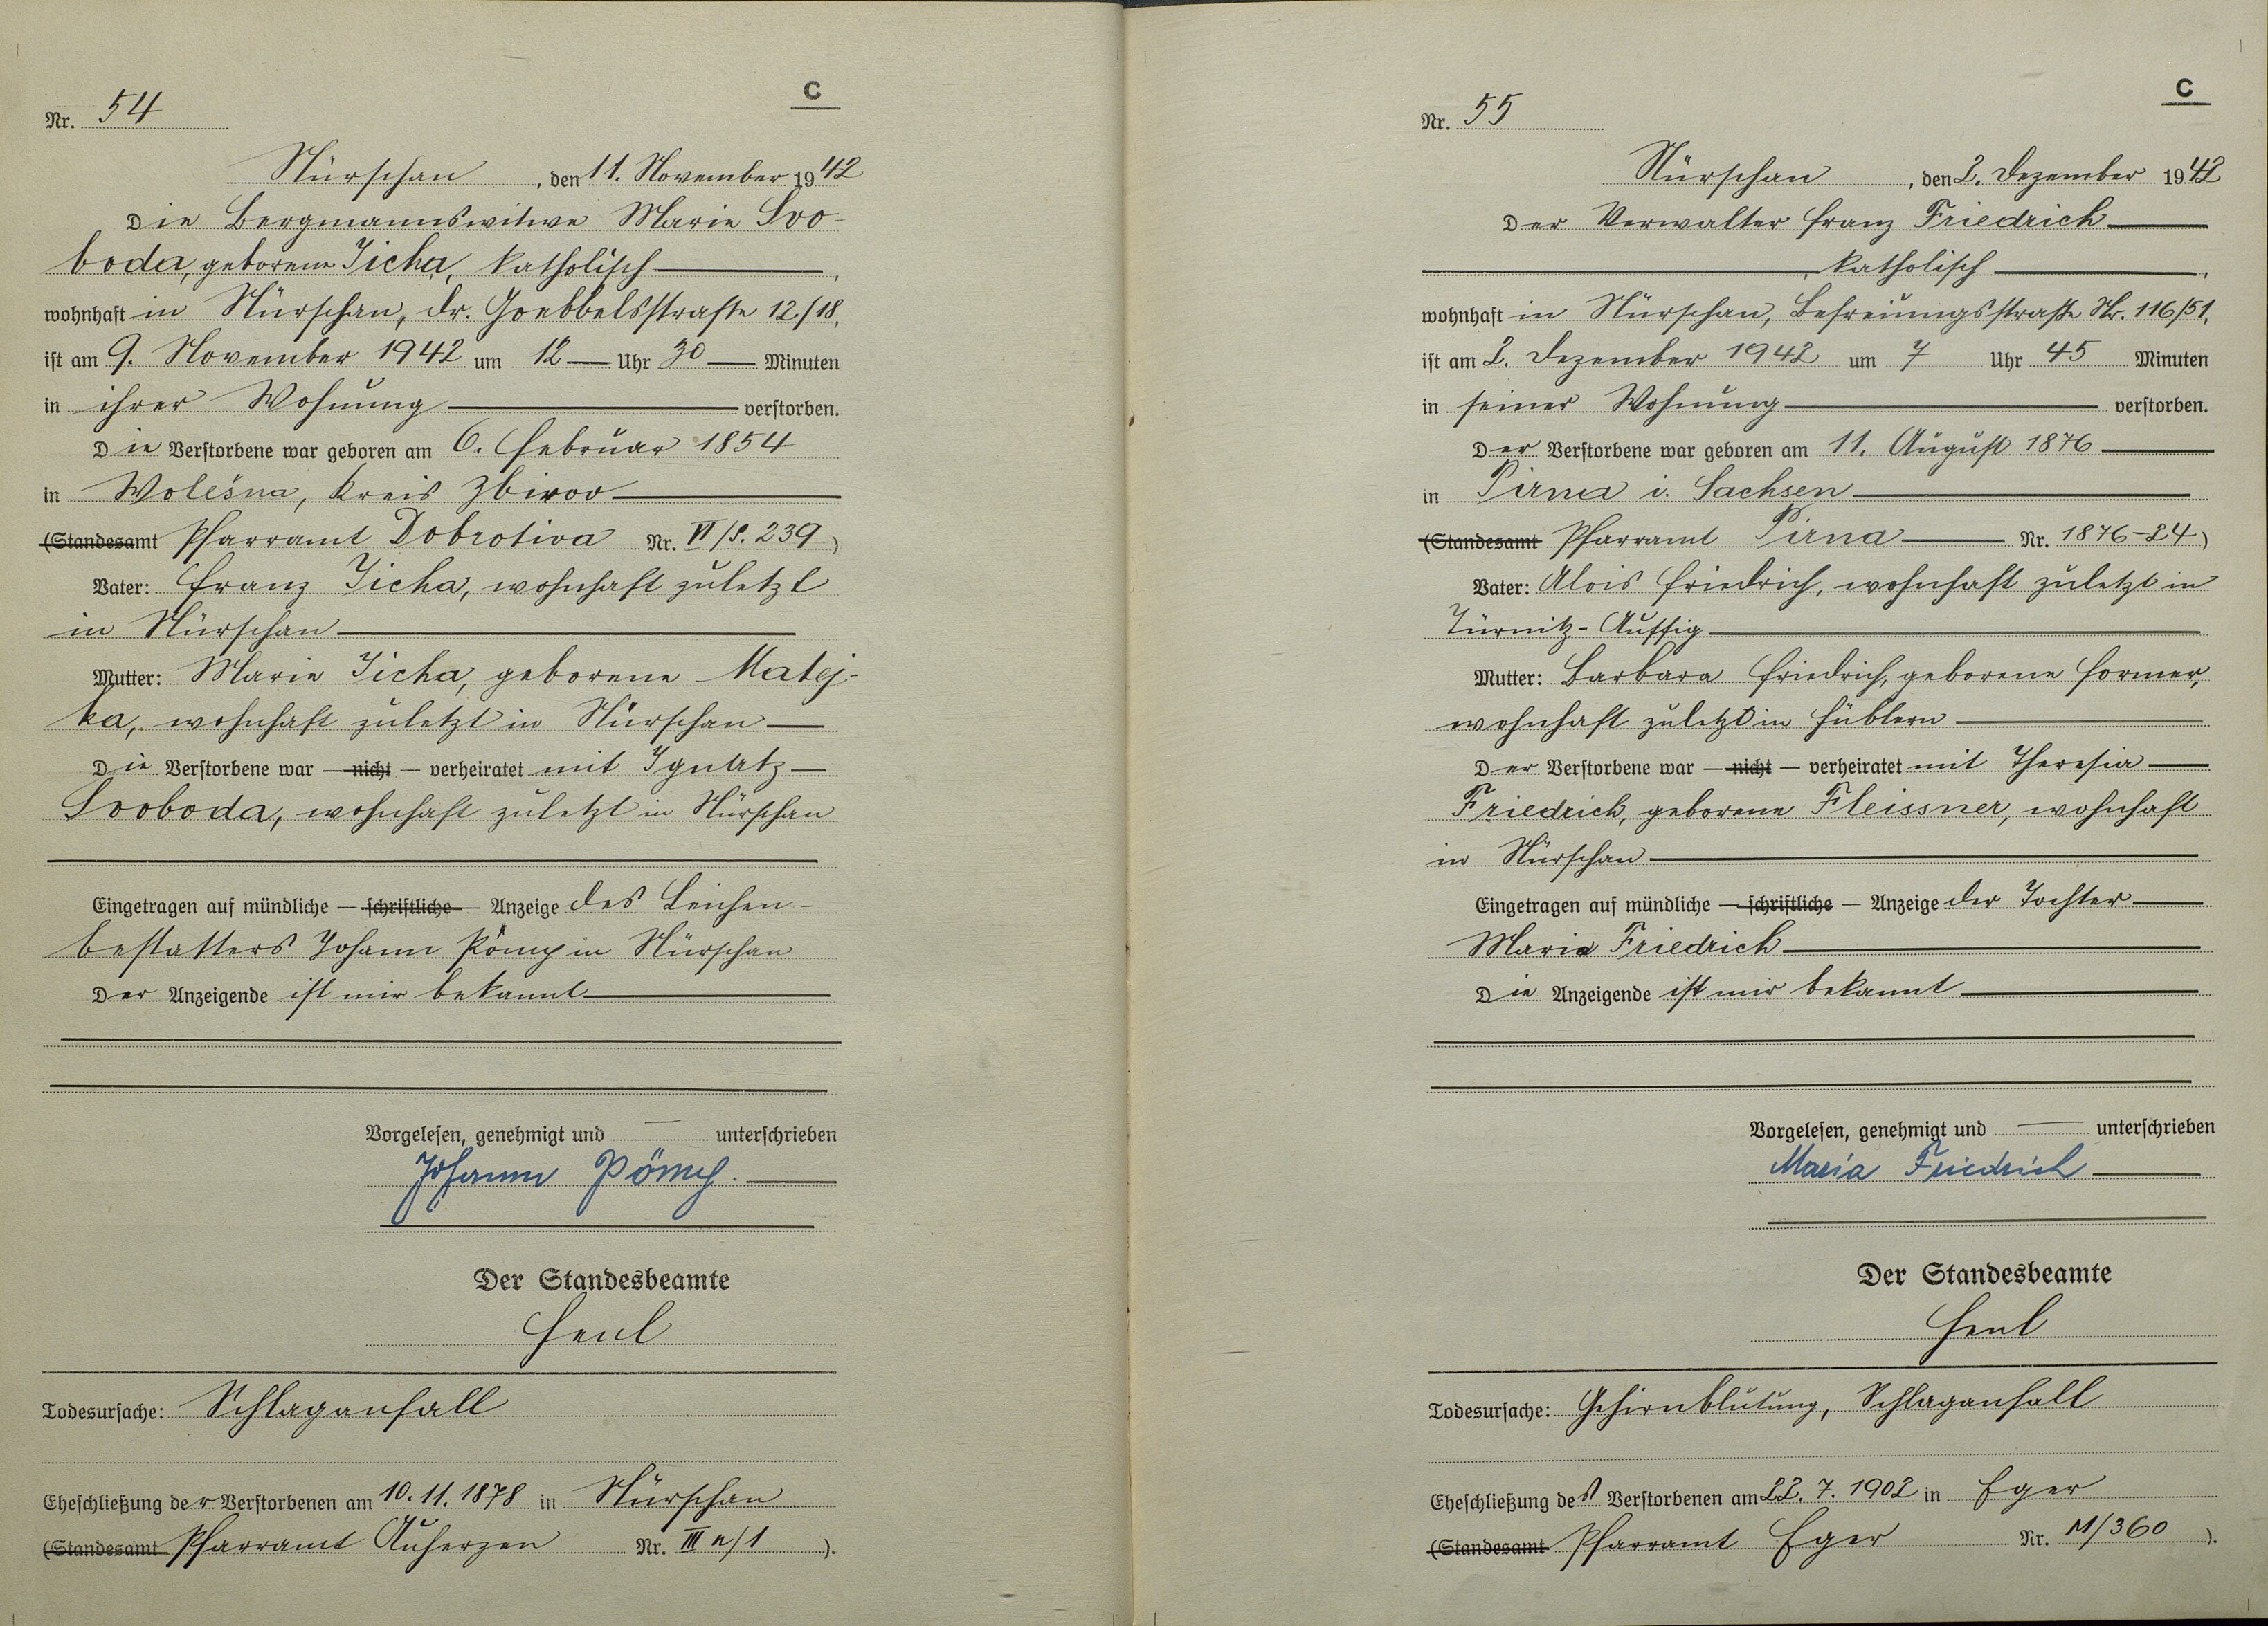 C
Nr. 54
Nürschan, den 11. November 1942
Die Bergmannswitwe Marie Svo-
boda, geborene Jicha, katholisch,
wohnhaft in Nürschan, Dr. Goebbelsstraße 12/18,
ist am 9. November 1942 um 12 Uhr 30 Minuten
in ihrer Wohnung verstorben.
Die Verstorbene war geboren am 6. Februar 1854
in Wolešna, Kreis Zbirov
(Standesamt Pfarramt Dobrotiva Nr. VI/S. 239)
Vater: Franz Jicha, wohnhaft zuletzt
in Nürschan
Mutter: Marie Jicha, geborene Matej-
ka, wohnhaft zuletzt in Nürschan
Die Verstorbene war — nicht — verheiratet mit Ignatz
Svoboda, wohnhaft zuletzt in Nürschan
Eingetragen auf mündliche — schriftliche — Anzeige des Leichen-
bestatters Johann in Nürschan
Der Anzeigende ist mir bekannt
Vorgelesen, genehmigt und — unterschrieben
Johann
Der Standesbeamte
Henl
Todesursache: Schlaganfall
Eheschließung der Verstorbenen am 10.11.1878 in Nürschan
(Standesamt Pfarramt Auherzen Nr. III a/1).
C
Nr. 55
Nürschan, den 2. Dezember 1942
Der Verwalter Franz Friedrich
, katholisch,
wohnhaft in Nürschan, Befreiungsstraße Nr. 116/51,
ist am 2. Dezember 1942 um 7 Uhr 45 Minuten
in seiner Wohnung verstorben.
Der Verstorbene war geboren am 11. August 1876
in Pirna i. Sachsen
(Standesamt Pfarramt Pirna Nr. 1876-24)
Vater: Alois Friedrich, wohnhaft zuletzt in
Türnitz-Aussig
Mutter: Barbara Friedrich, geborene Former,
wohnhaft zuletzt in
Der Verstorbene war — nicht — verheiratet mit Theresia
Friedrich, geborene Fleissner, wohnhaft
in Nürschan
Eingetragen auf mündliche — schriftliche — Anzeige der Tochter
Maria Friedrich
Die Anzeigende ist mir bekannt
Vorgelesen, genehmigt und — unterschrieben
Maria Friedrich
Der Standesbeamte
Henl
Todesursache: Gehirnblutung, Schlaganfall
Eheschließung des Verstorbenen am 22.7.1902 in Eger
(Standesamt Pfarramt Eger Nr. M/360).